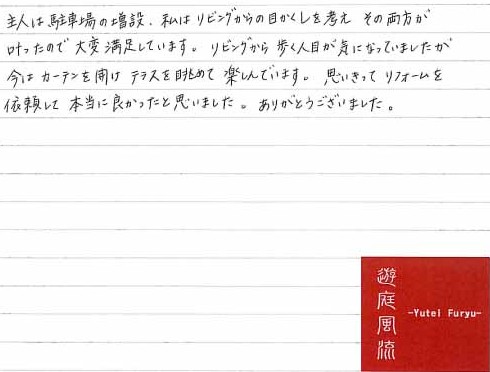 主人は駐車場の増設、私はリビングからの目かくしを考え その両方が
叶ったので大変満足しています。リビングから歩く人目が気になっていましたが
今はカーテンを開け テラスを眺めて 楽しんでいます。思いきって リフォームを
依頼して 本当に良かったと思いました。ありがとうございました。
遊庭風流
-Yutei Furyu-